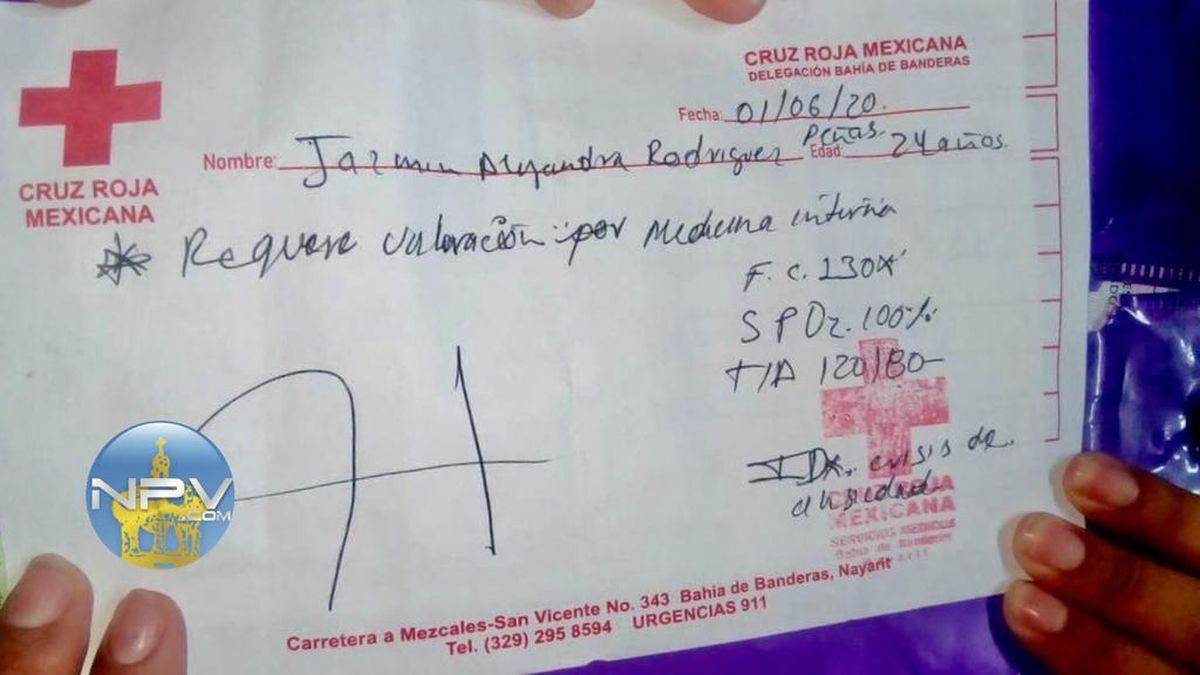 CRUZ ROJA MEXICANA
DELEGACIÓN BAHÍA DE BANDERAS
Fecha: 01/06/20.
CRUZ ROJA
MEXICANA
Nombre: Jazmin Alejandra Rodriguez Peñas. Edad: 24 años.
* Requiere valoración por medicina interna
F.C. 130x'
SPO2. 100%
T/A 120/80
IDX. crisis de
ansiedad
CRUZ ROJA
MEXICANA
SERVICIOS MEDICOS
Bahia de Banderas
NPV
.COM
Carretera a Mezcales-San Vicente No. 343 Bahia de Banderas, Nayarit
Tel. (329) 295 8594 URGENCIAS 911